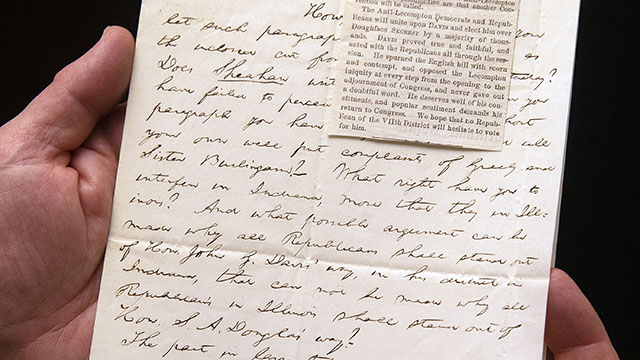 How you
let such paragraph as
the inclosed cut from
Does Sheahan writ you
have failed to percei short
paragraph you have will
your own will put complaints of Greely and
Sister Burlingame? What right have you to
interfere in Indiana, more than they in Ill-
inois? And what possible argument can be
made why all Republicans shall stand out
of Hon. John G. Davis' way, in his district in
Indiana, that can not be made why all
Republicans in Illinois shall stand out of
Hon. S. A. Douglas' way?
The part in larg
are that another Con-
vention will be called.
The Anti-Lecompton Democrats and Repub-
licans will unite upon DAVIS and elect him over
Doughface SECREST by a majority of thous-
ands. DAVIS proved true and faithful, and
acted with the Republicans all through the ses-
sion. He spurned the English bill with scorn
and contempt, and opposed the Lecompton
iniquity at every step from the opening to the
adjournment of Congress, and never gave out
a doubtful word. He deserves well of his con-
stituents, and popular sentiment demands his
return to Congress. We hope that no Repub-
lican of the VIIth District will hesitate to vote
for him.